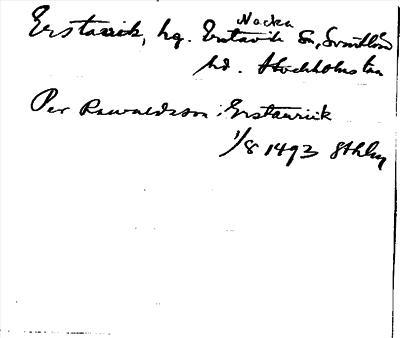 Erstavik, hg. Erstavik Nacka sn, Svartlösa
hd. Stockholms län
Per Ragvaldsson i Erstavik
1/8 1493 Sthlm